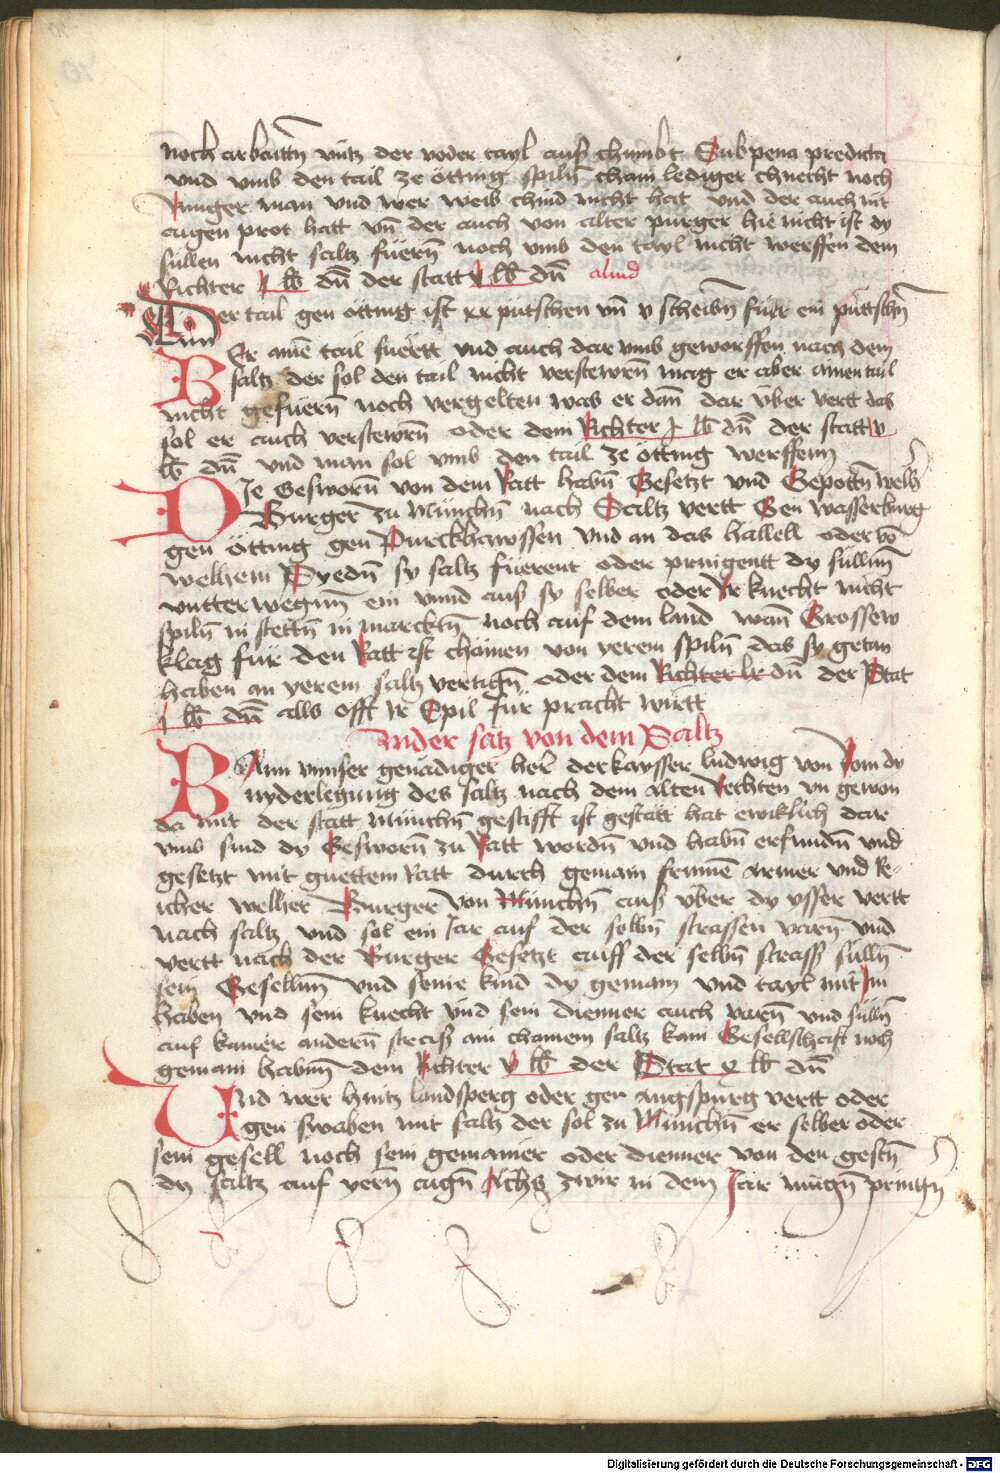 noch arbaittn̄ vntz der voder tayl aus chumbt Subpena predicta
vnd vmb den tail ze ötting spiln̄ chain lediger chnecht noch
Junger man vnd wer weib chind nicht hat vnd der auch nit
augen prot hatt vn̄ der auch von alter purger hie nicht ist dy
sullen nicht saltz fuern̄ noch vmb den tayl nicht werffen dem
Richter j lb dn̄ der statt v lb dn̄ aliud
Der tail gen ötting ist xx putschen vn̄ v scheibn̄ für ein puttschn̄
Er aine tail fuertt vnd auch dar vmb geworffen nach dem
saltz der sol den tail nicht verstewrn̄ mag er aber ainen tail
nicht gefuern̄ noch vergelten was er dan̄ dar vber vertt das
sol er auch verstewrn̄ oder dem Richter j lb dn̄ der statt v
lb dn̄ vnd man sol vmb den tail ze ötting werffenn
DJe Gesworn̄ von dem Ratt habn̄ Gesetzt vnd Gepottn̄ welh
Burger zu Münchn̄ nach Saltz vertt Gen wasserburg
gen ötting gen Purckhawssen vnd an das hällell oder vo᷑
welhem Syedn̄ sy saltz füerent oder pringentt dy sullnn̄
vntter wegnn̄ ein vnnd aus sy selber oder Jr knecht nicht
spiln̄ in stettn̄ in marcktn̄ noch auf dem land wan̄ Grossew
klag für den Ratt ist chömen von yerem spiln̄ das sy getan
haben an yerem saltz vertign̄ oder dem Richter lx dn̄ der Stat
j lb dn̄ alls offt Jr Spil für pracht wirtt
Ander sätz von dem Saltz
WAnn vnnser genadiger her der kaysser ludwig von Rom dy
nyderlegung des saltz nach dem alten Rechten vn gewon
da mit der statt Münchn̄ gestifft ist gestätt hat ewiklich dar
vmb sind dy Gesworn̄ zu Ratt wordn̄ vnd habn̄ erfundn̄ vnd
gesetzt mit guettem Ratt durch gemain frumē armer vnd Re-
icher welher Burger von Münchn̄ aus vber dy ysser vertt
nach saltz vnd sol ein Jar auf der selbn̄ strassen varn̄ vnd
vertt nach der Burger Gesetzt auff der selbn̄ strass sulln̄
sein Gesellnn̄ vnd seine kind dy gemain vnd tayl mit Jm
haben vnd sein knecht vnd sein dienner auch varn̄ vnd sulln̄
auf kainer andern̄ strass an chainem saltz kain Gesellschaft noch
gemain habnn̄ dem Richter v lb der Stat x lb dn̄
Vnd wer hintz landsperg oder gen augspurg vertt oder
gen swaben mit saltz der sol zu Münchn̄ er selber oder
sein gesell noch sein gemainer oder dienner von den gestn̄
dy saltz auf yern̄ augn̄ Achs zwir in dem Jar mugn̄ pringn̄
Digitalisierung gefördert durch die Deutsche Forschungsgemeinschaft - DFG